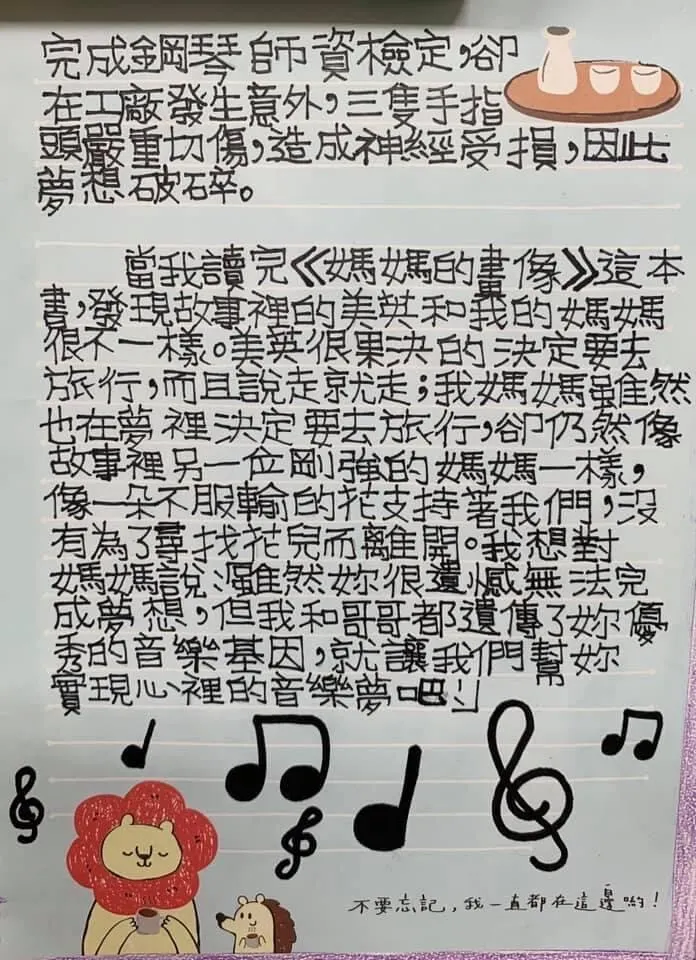 完成鋼琴師資檢定,卻
在工廠發生意外,三隻手指
頭嚴重切傷,造成神經受損,因此
夢想破碎。
當我讀完《媽媽的畫像》這本
書,發現故事裡的美英和我的媽媽
很不一樣。美英很果決的決定要去
旅行,而且說走就走;我媽媽雖然
也在夢裡決定要去旅行,卻仍然像
故事裡另一位剛強的媽媽一樣,
像一朵不服輸的花支持著我們,沒
有為了尋找花兒而離開。我想對
媽媽說:「雖然妳很遺憾無法完
成夢想,但我和哥哥都遺傳了妳優
秀的音樂基因,就讓我們幫妳
實現心裡的音樂夢吧!」
不要忘記,我一直都在這邊喲!